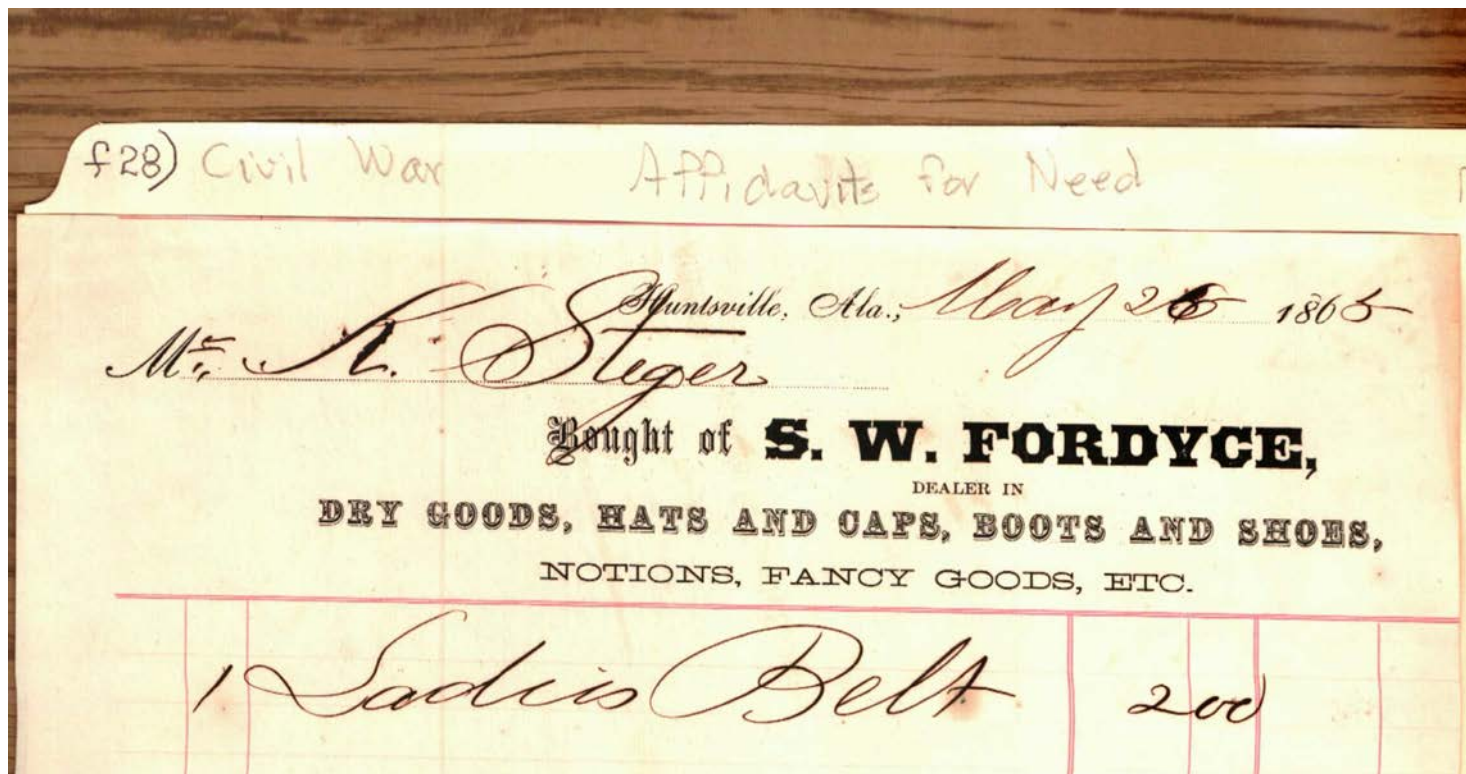 f28) Civil War Affidavits for Need
Huntsville, Ala., May 26 1865
Mr. K. Steger
Bought of S. W. FORDYCE,
DEALER IN
DRY GOODS, HATS AND CAPS, BOOTS AND SHOES,
NOTIONS, FANCY GOODS, ETC.
1 Ladies Belt 200